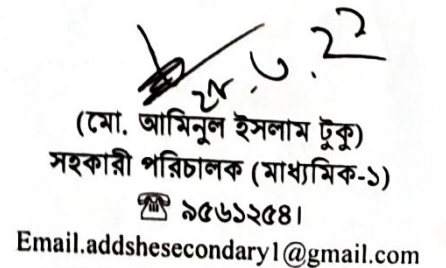 (মো. আমিনুল ইসলাম টুকু)
সহকারী পরিচালক (মাধ্যমিক-১)
☎ ৯৫৬১২৫৪।
Email.addshesecondary1@gmail.com